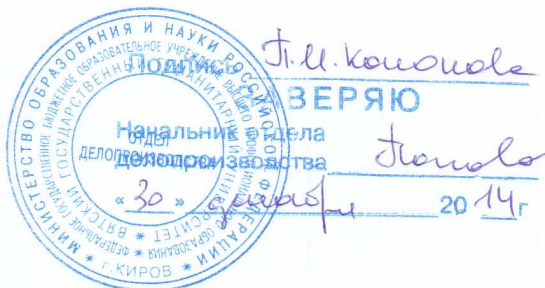 МИНИСТЕРСТВО ОБРАЗОВАНИЯ И НАУКИ РОССИЙСКОЙ ФЕДЕРАЦИИ
* г.КИРОВ *
ФЕДЕРАЛЬНОЕ ГОСУДАРСТВЕННОЕ БЮДЖЕТНОЕ ОБРАЗОВАТЕЛЬНОЕ УЧРЕЖДЕНИЕ ВЫСШЕГО ПРОФЕССИОНАЛЬНОГО ОБРАЗОВАНИЯ
ВЯТСКИЙ ГОСУДАРСТВЕННЫЙ ГУМАНИТАРНЫЙ УНИВЕРСИТЕТ
ОТДЕЛ
ДЕЛОПРОИЗВОДСТВА
Подпись П.И. Кононова
ЗАВЕРЯЮ
Начальник отдела
делопроизводства
« 30 » декабря 20 14г